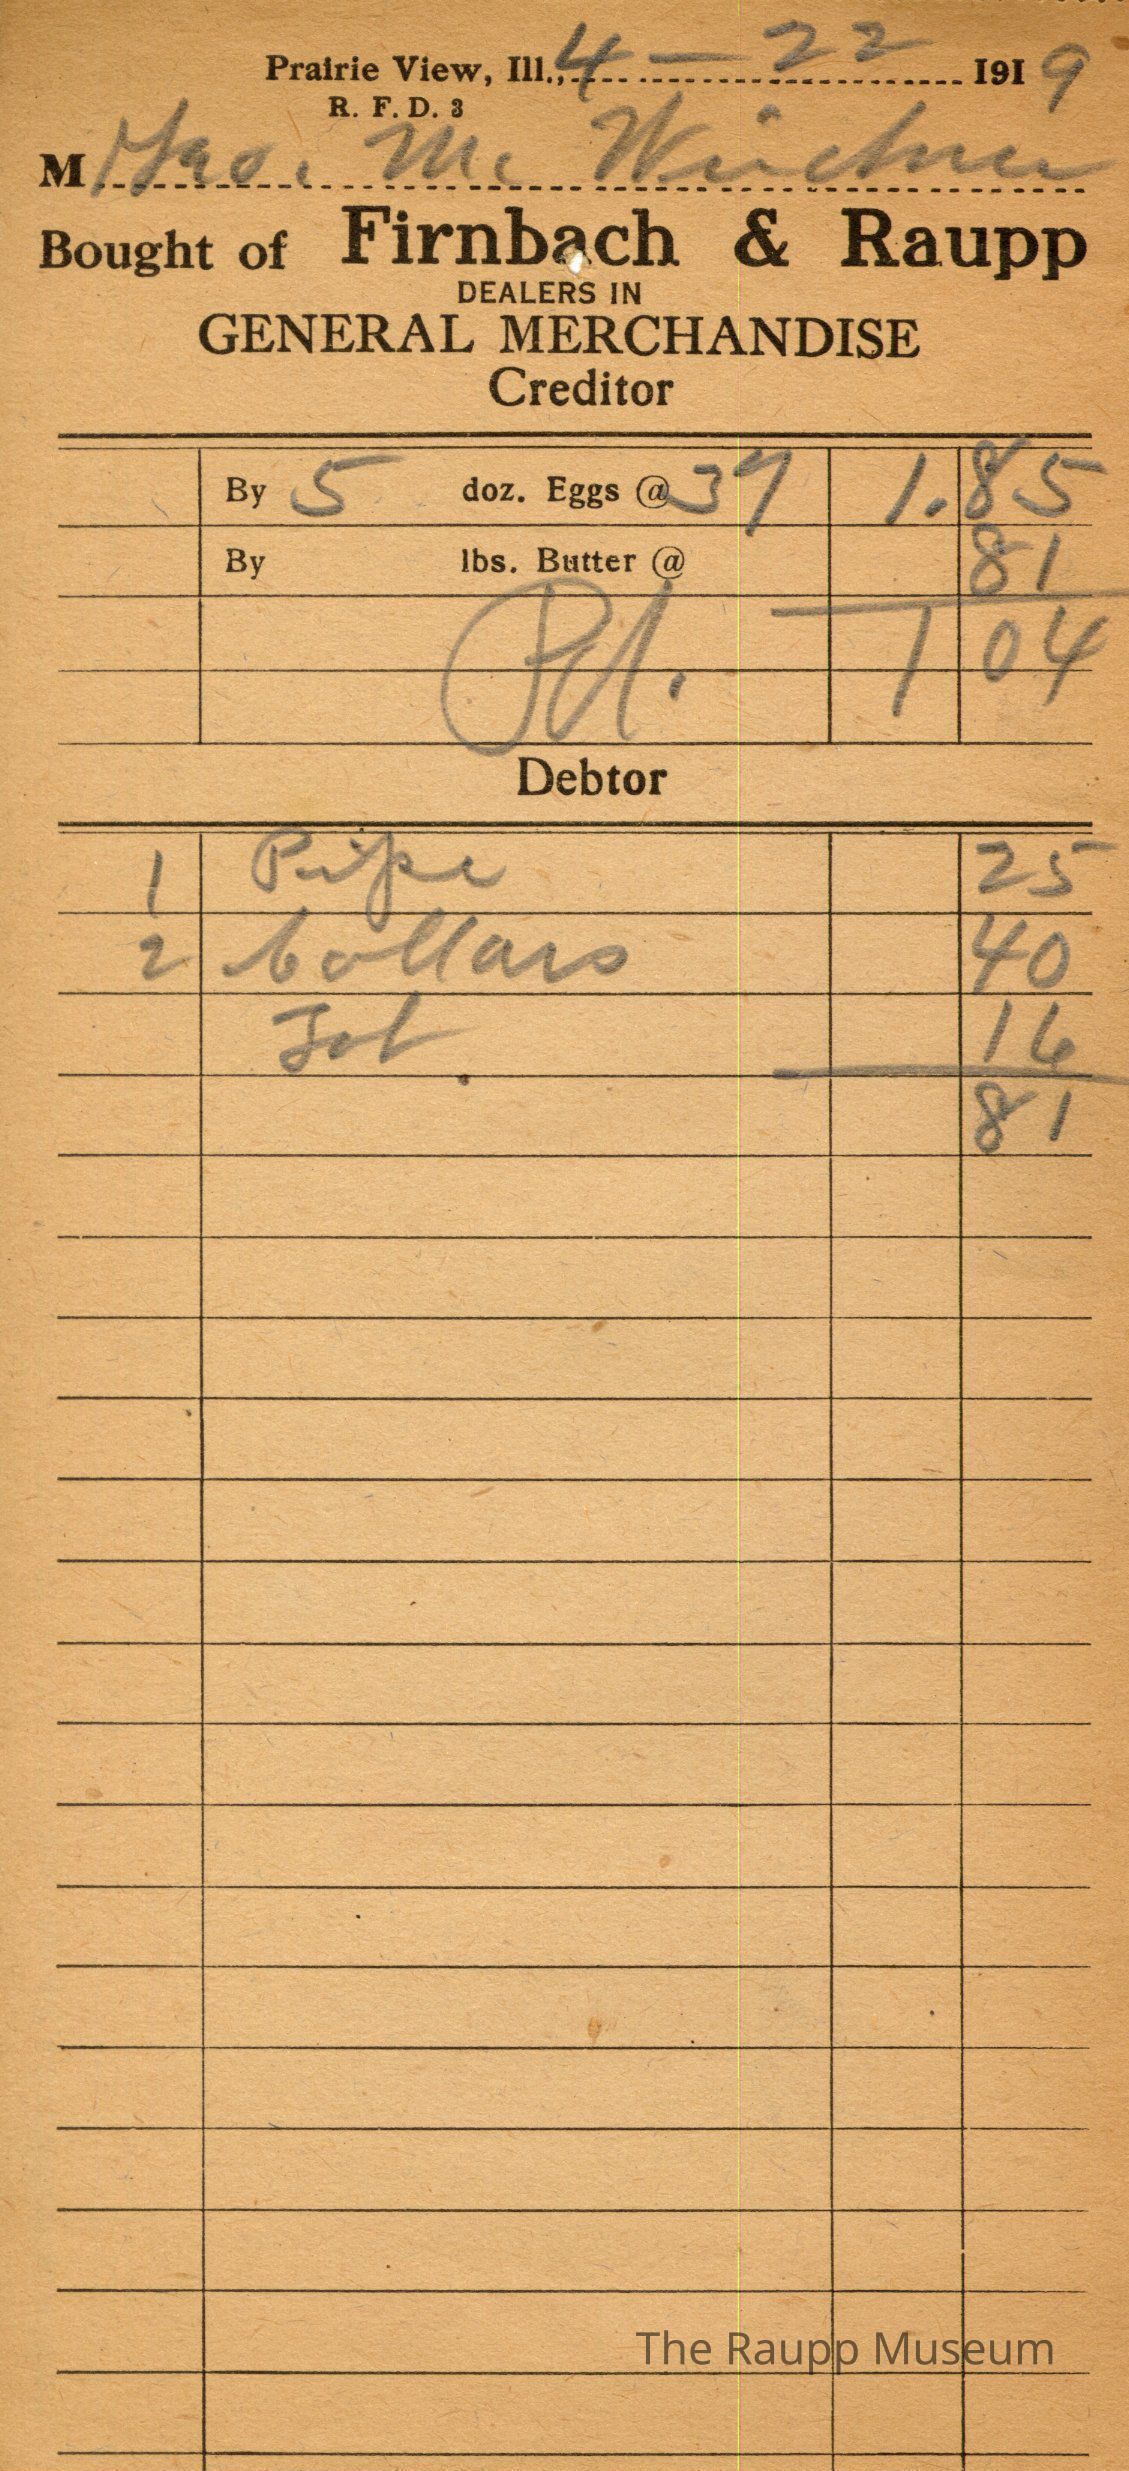 Prairie View, Ill., 4 — 22 1919
R. F. D. 3
M Geo. Mc Wirchner
Bought of Firnbach & Raupp
DEALERS IN
GENERAL MERCHANDISE
Creditor
By 5 doz. Eggs @ 37 1.85
By lbs. Butter @ 81
Pd. 1 04
Debtor
1 Pipe 25
2 Collars 40
Tob 16
81
The Raupp Museum